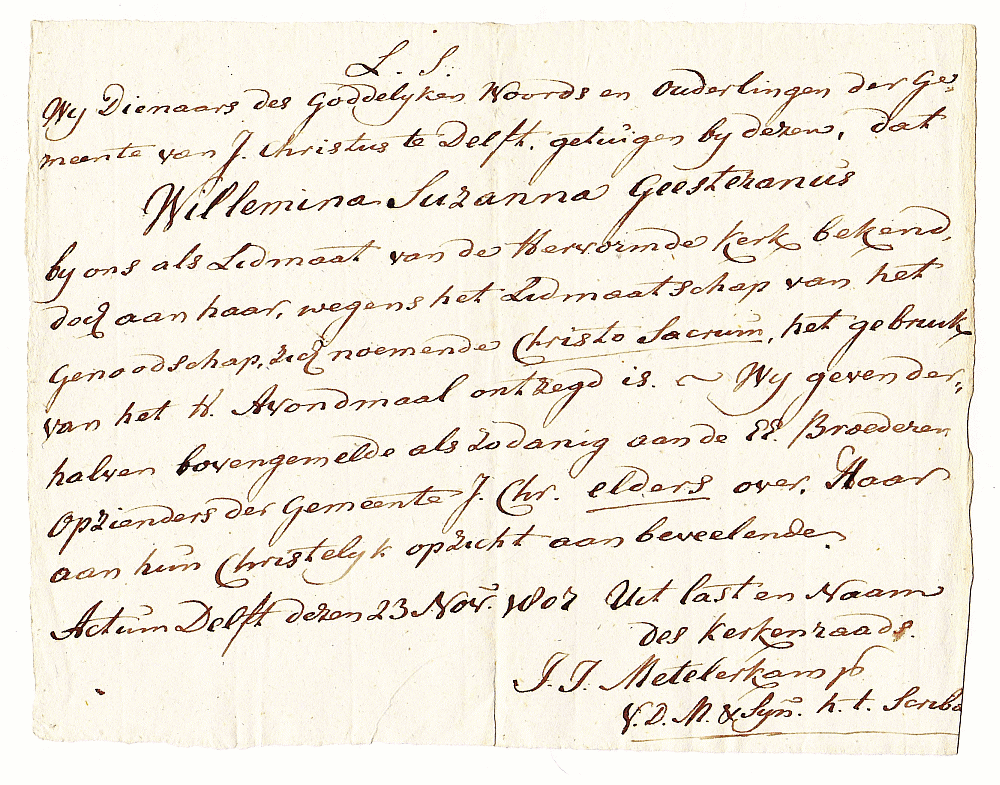 L. S.
Wy Dienaars des Goddelyken Woords en Ouderlingen der Ge=
meente van J. Christus te Delft, getuigen by dezen, dat
Willemina Suzanna Geesteranus
by ons als Lidmaat van de Hervormde Kerk bekend,
doch aan haar, wegens het Lidmaatschap van het
Genoodschap, zich noemende Christo Sacrum, het gebruik
van het H. Avondmaal ontzegd is. ~ Wy geven der=
halven bovengemelde als zodanig aan de EE. Broederen
Opzienders der Gemeente J. Chr. elders over, Haar
aan hun Christelyk opzicht aanbeveelende.
Actum Delft dezen 23 Nov. 1807 Uit last en Naam
des Kerkenraads.
J. J. Metelerkamp
V. D. M. & Syn. h. t. Scriba